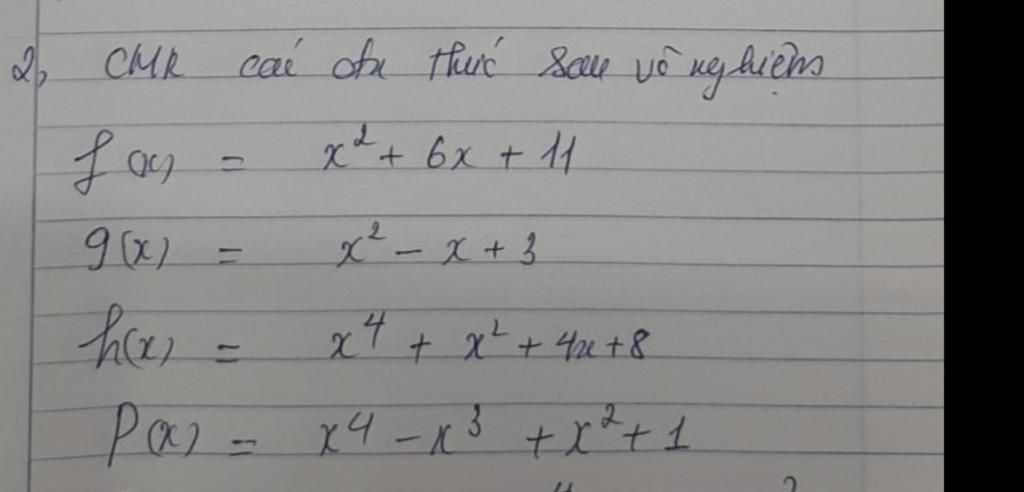 2, CMR các đa thức sau vô nghiệm
f(x) = x² + 6x + 11
g(x) = x² - x + 3
h(x) = x⁴ + x² + 4x + 8
P(x) = x⁴ - x³ + x² + 1